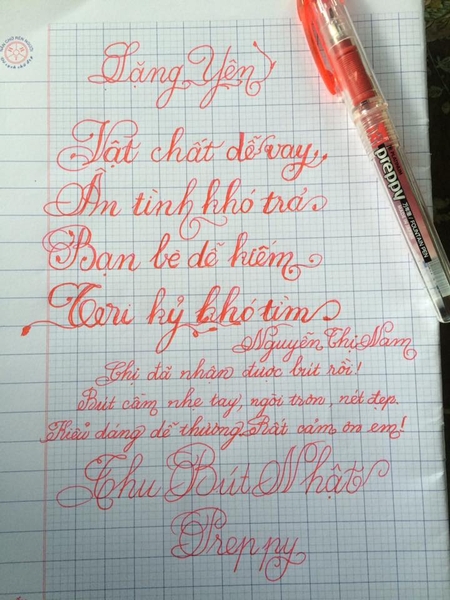 Tặng Yên
Vật chất dễ vay,
Ân tình khó trả
Bạn bè dễ kiếm
Tri kỷ khó tìm
Nguyễn Thị Nam
Chị đã nhận được bút rồi!
Bút cầm nhẹ tay, ngòi trơn, nét đẹp.
Kiểu dáng dễ thương. Rất cảm ơn em!
Thu Bút Nhật
Preppy
preppy
FOUNTAIN PEN